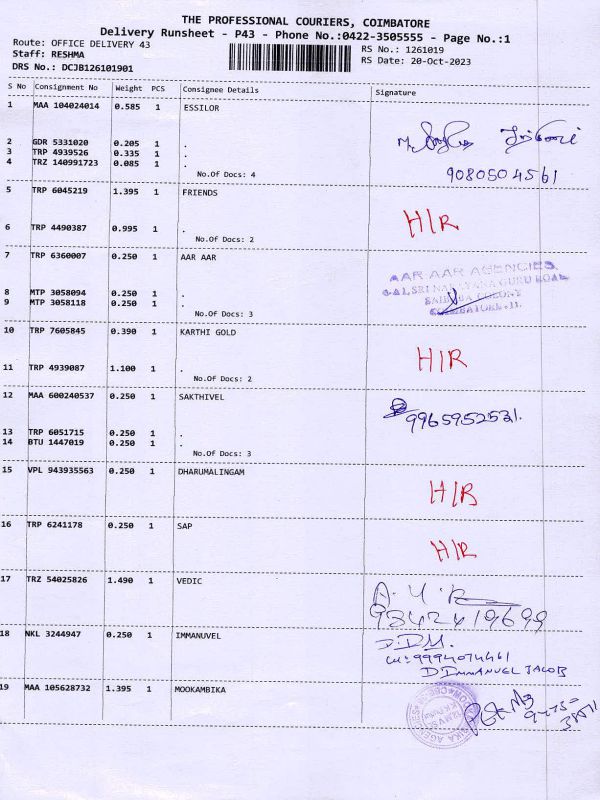 THE PROFESSIONAL COURIERS, COIMBATORE
Delivery Runsheet - P43 - Phone No.:0422-3505555 - Page No.:1
Route: OFFICE DELIVERY 43 RS No.: 1261019
Staff: RESHMA RS Date: 20-Oct-2023
DRS No.: DCJB126101901
S No Consignment No Weight PCS Consignee Details Signature
1 MAA 104024014 0.585 1 ESSILOR
2 GDR 5331020 0.205 1 .
3 TRP 4939526 0.335 1 .
4 TRZ 140991723 0.085 1 .
No.Of Docs: 4 9080504561
5 TRP 6045219 1.395 1 FRIENDS
H/R
6 TRP 4490387 0.995 1 .
No.Of Docs: 2
7 TRP 6360007 0.250 1 AAR AAR
AAR AAR AGENCIES,
SRI NARAYANA GURU ROAD
8 MTP 3058094 0.250 1 .
SAIBABA COLONY
9 MTP 3058118 0.250 1 .
COIMBATORE-11.
No.Of Docs: 3
10 TRP 7605845 0.390 1 KARTHI GOLD
H/R
11 TRP 4939087 1.100 1 .
No.Of Docs: 2
12 MAA 600240537 0.250 1 SAKTHIVEL
9965952531.
13 TRP 6051715 0.250 1 .
14 BTU 1447019 0.250 1 .
No.Of Docs: 3
15 VPL 943935563 0.250 1 DHARUMALINGAM
H/R
16 TRP 6241178 0.250 1 SAP
H/R
17 TRZ 54025826 1.490 1 VEDIC
9342419699
18 NKL 3244947 0.250 1 IMMANUVEL
9994074461
D IMMANUEL JACOB
19 MAA 105628732 1.395 1 MOOKAMBIKA